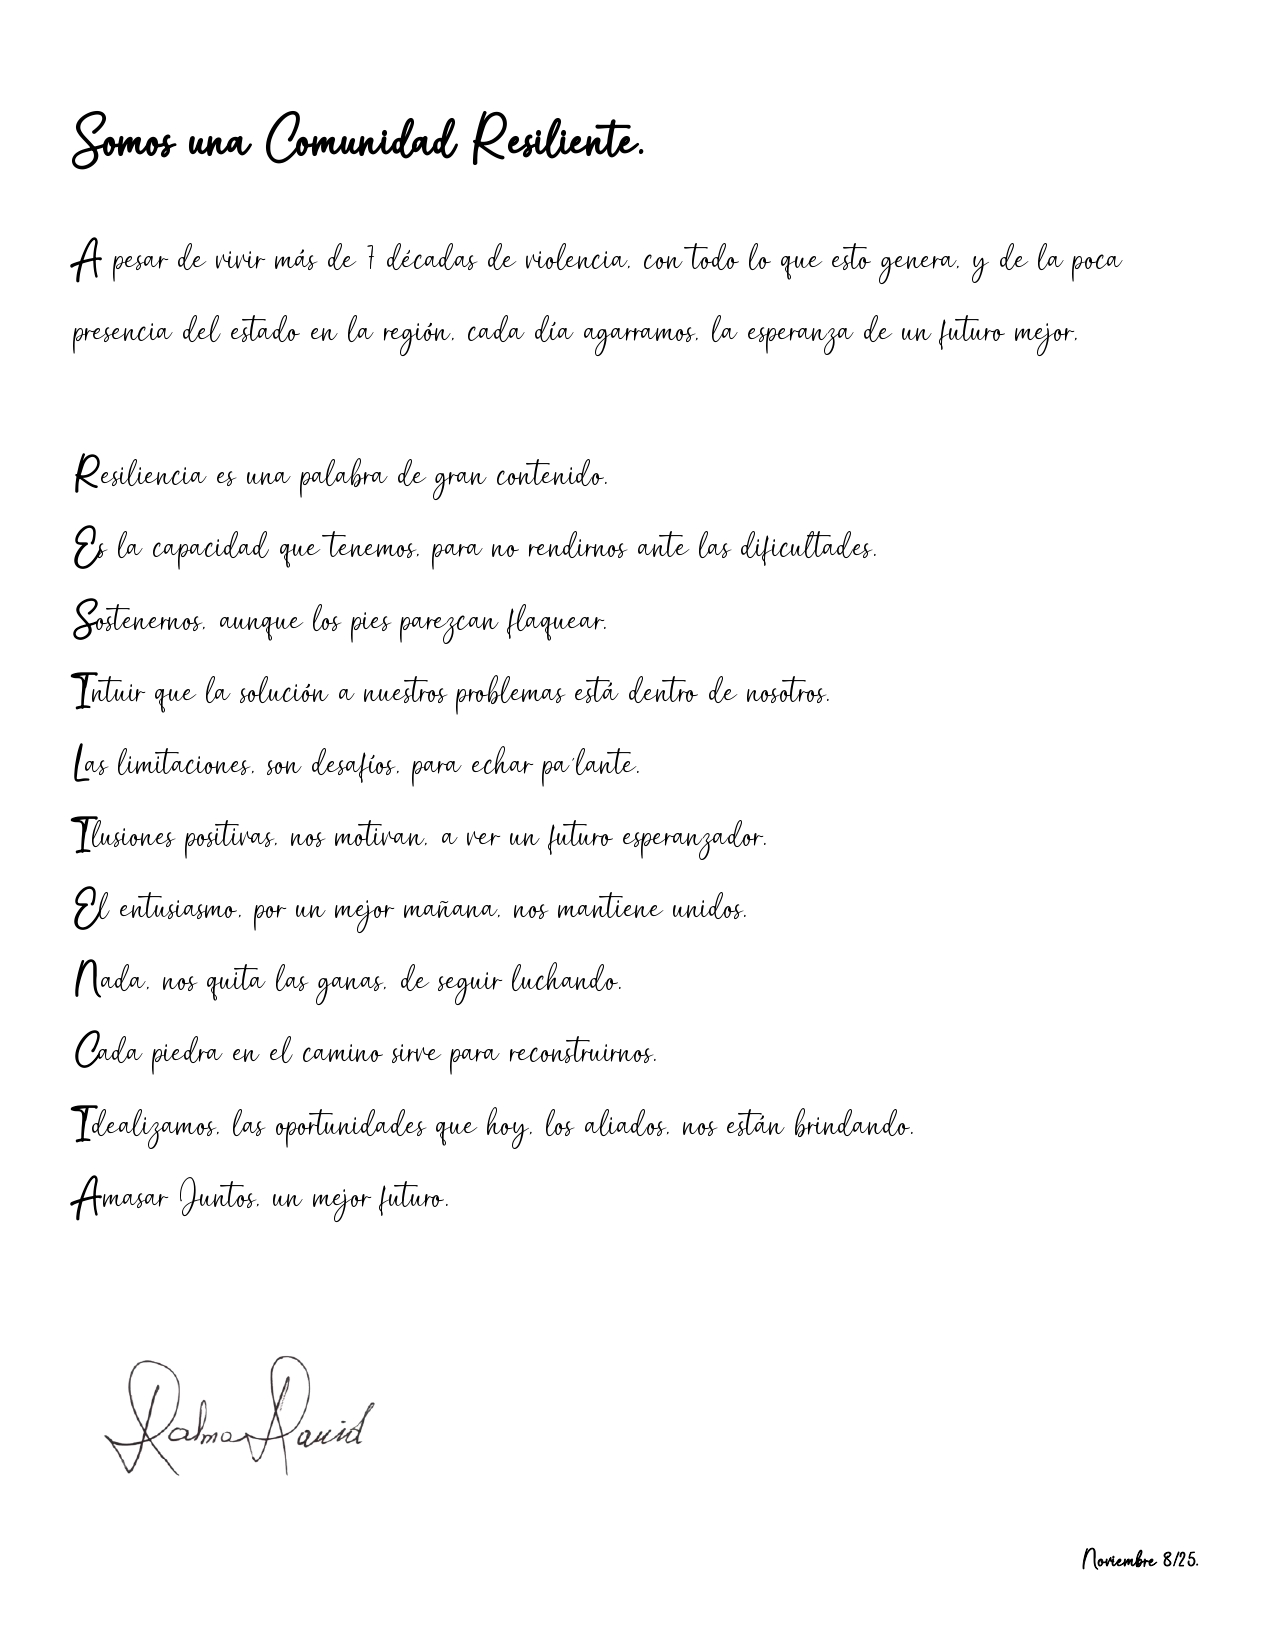 Somos una Comunidad Resiliente.
A pesar de vivir más de 7 décadas de violencia, con todo lo que esto genera, y de la poca
presencia del estado en la región, cada día agarramos, la esperanza de un futuro mejor.
Resiliencia es una palabra de gran contenido.
Es la capacidad que tenemos, para no rendirnos ante las dificultades.
Sostenernos, aunque los pies parezcan flaquear.
Intuir que la solución a nuestros problemas está dentro de nosotros.
Las limitaciones, son desafíos, para echar pa'lante.
Ilusiones positivas, nos motivan, a ver un futuro esperanzador.
El entusiasmo, por un mejor mañana, nos mantiene unidos.
Nada, nos quita las ganas, de seguir luchando.
Cada piedra en el camino sirve para reconstruirnos.
Idealizamos, las oportunidades que hoy, los aliados, nos están brindando.
Amasar Juntos, un mejor futuro.
David
Noviembre 8/25.